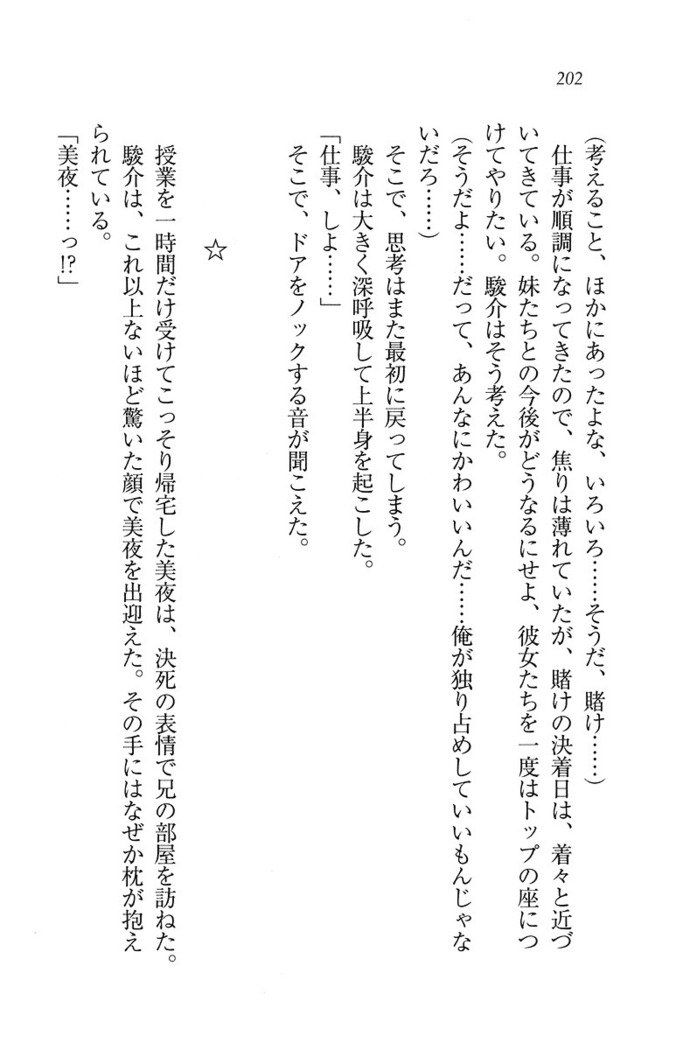 202
（考えること、ほかにあったよな、いろいろ……そうだ、賭け……）
仕事が順調になってきたので、焦りは薄れていたが、賭けの決着日は、着々と近づ
いてきている。妹たちとの今後がどうなるにせよ、彼女たちを一度はトップの座につ
けてやりたい。駿介はそう考えた。
（そうだよ……だって、あんなにかわいいんだ……俺が独り占めしていいもんじゃな
いだろ……）
そこで、思考はまた最初に戻ってしまう。
駿介は大きく深呼吸して上半身を起こした。
「仕事、しよ……」
そこで、ドアをノックする音が聞こえた。
☆
授業を一時間だけ受けてこっそり帰宅した美夜は、決死の表情で兄の部屋を訪ねた。
駿介は、これ以上ないほど驚いた顔で美夜を出迎えた。その手にはなぜか枕が抱え
られている。
「美夜……っ!?」